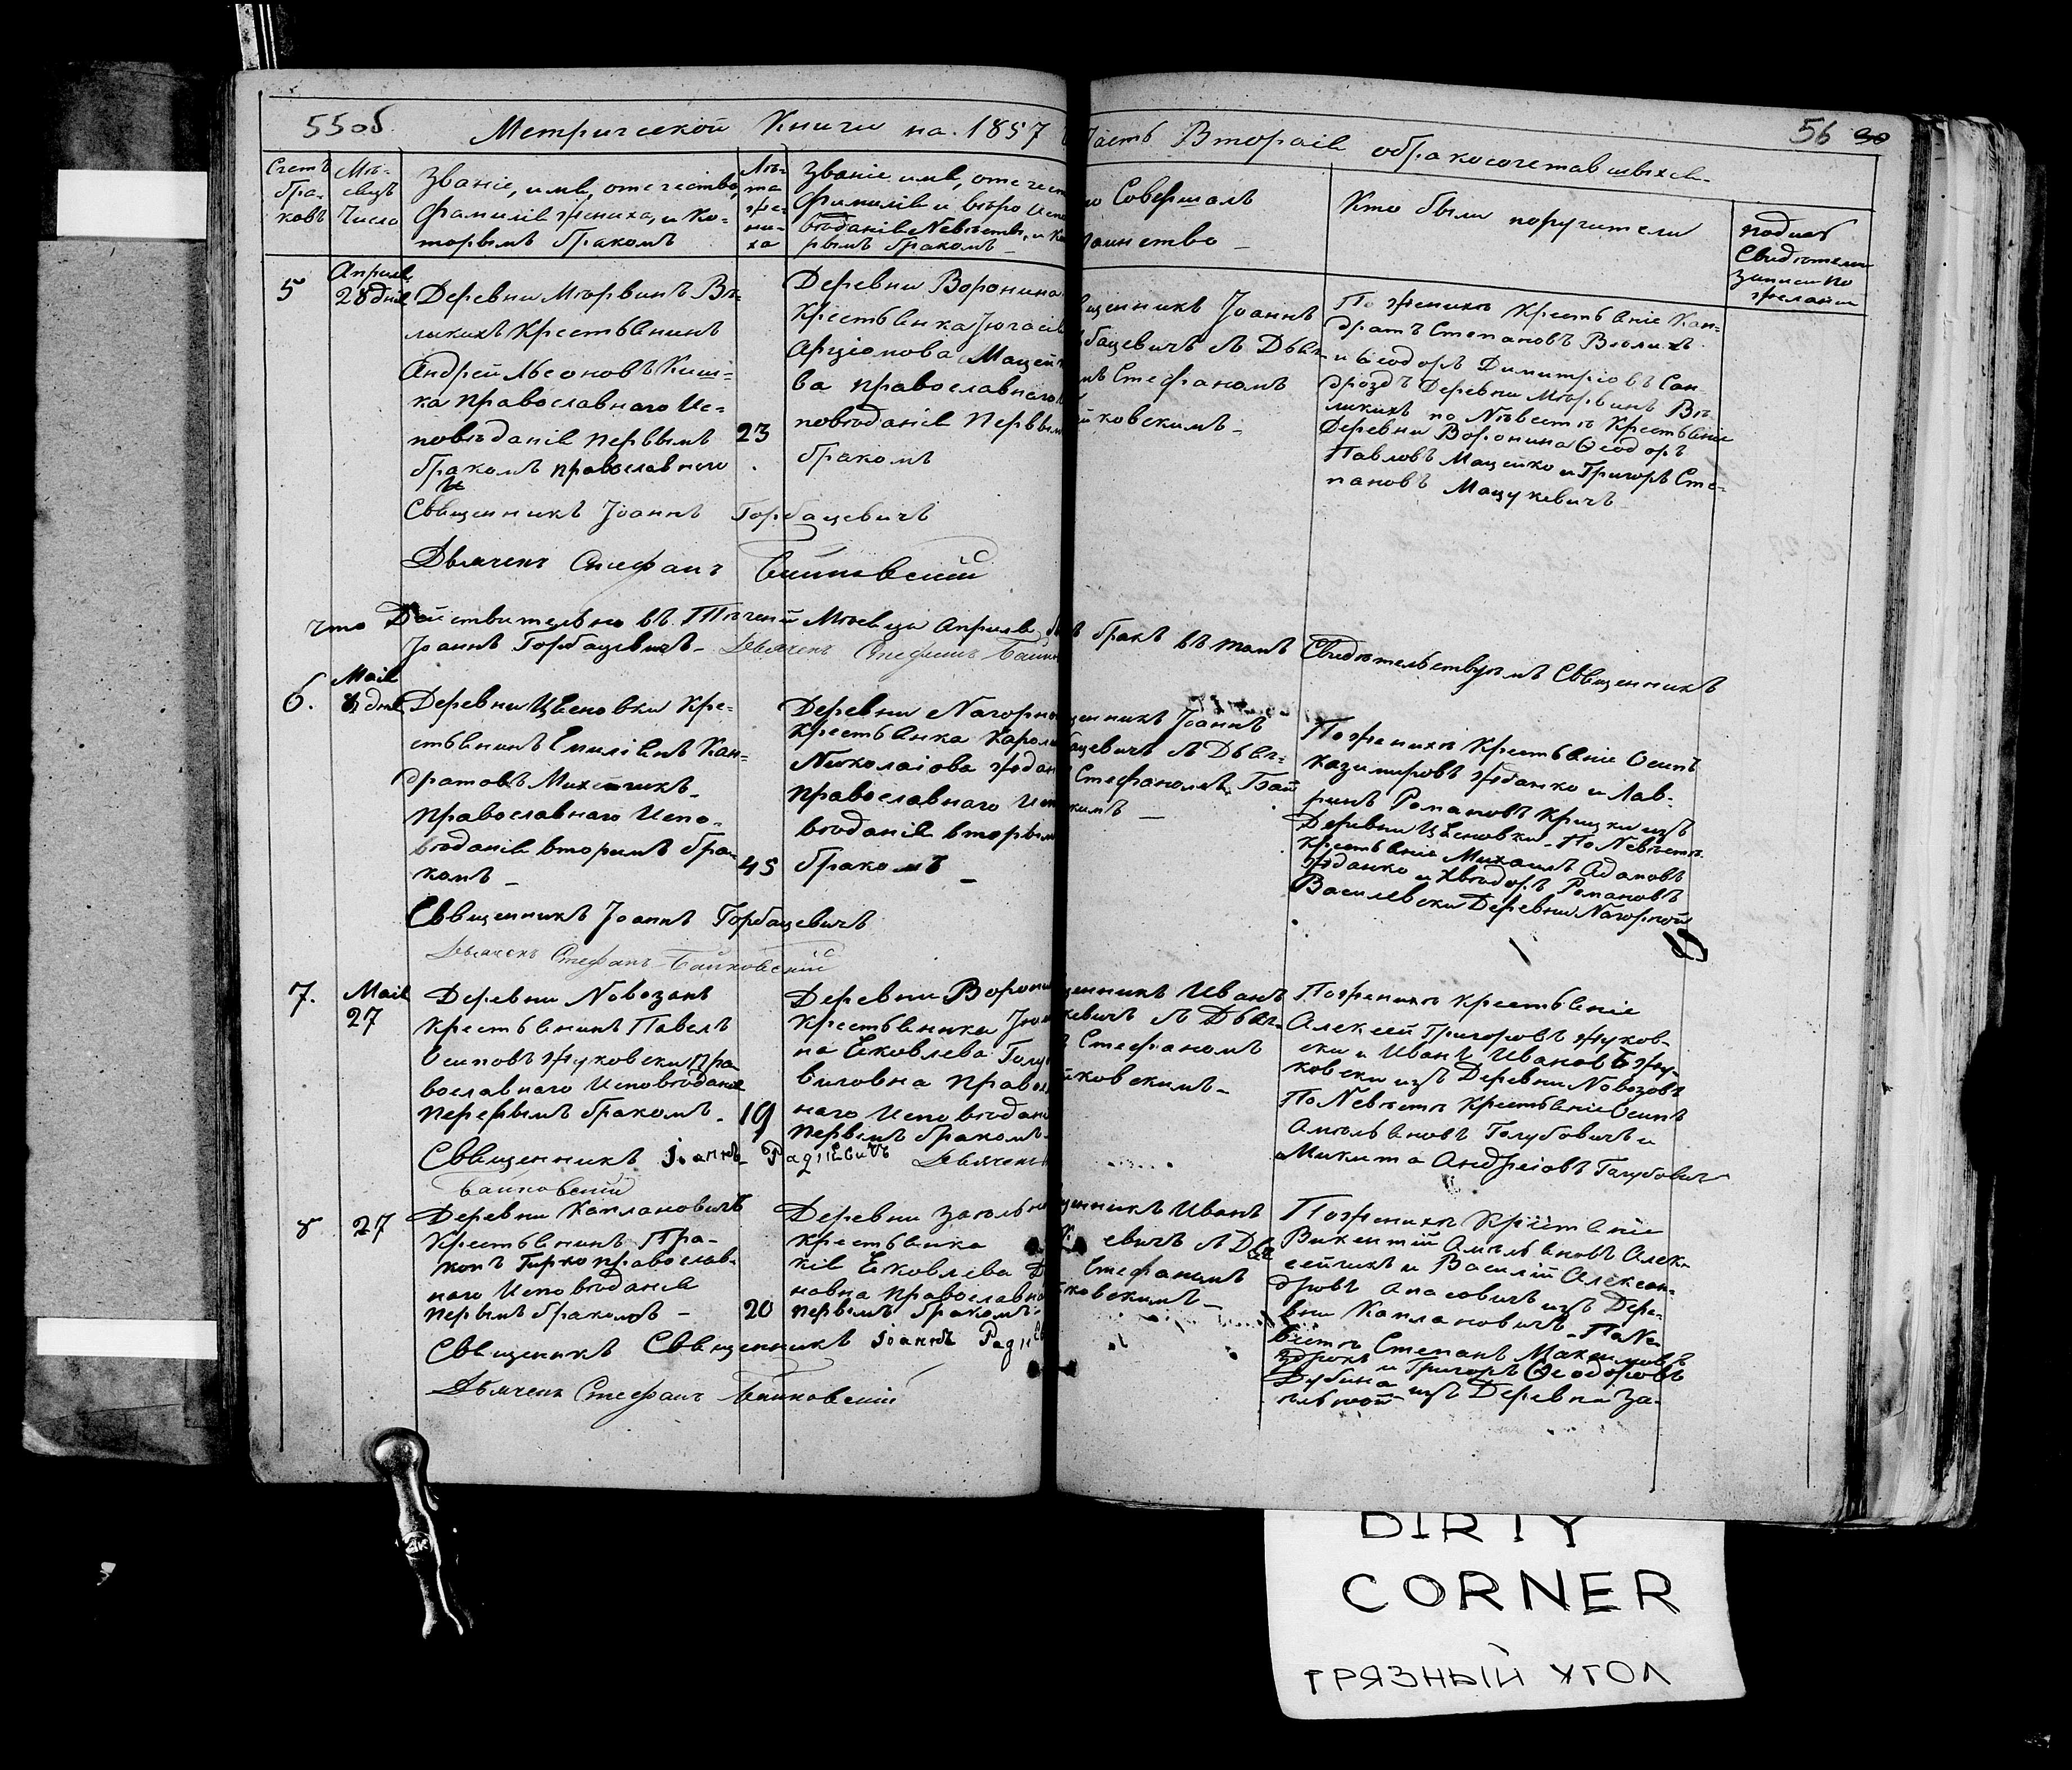 55об.
Метрической Книги на 1857
Часть Вторая о бракосочетавшыхся
56
Счетъ бра- ковъ
Мѣ- сяцъ Число
Званіе, имя, отечество,
фамилія жениха, и ко-
торымъ бракомъ
Лѣ- та же- ни- ха
Званіе имя, отечест
Фамилія и вѣро Испо
вѣданія Невѣсты, и ко
рымъ бракомъ
о Совершалъ
таинство
Кто были поручители
подпис
Свидѣтели
записи по
желани
5
Апрыля
28 дня
Деревни Мѣрвинъ Вѣ-
ликихъ Крестьянинъ
Андрей Леоновъ Киш-
ка православнаго Ис-
повѣданія первымъ
бракомъ православнаго
23
Деревни Воронина
Крестьянка
Мацей
ва православнаго
повѣданія первым
бракомъ
щенникъ Іоаннъ
бацевичъ съ Дьяч-
мъ Стефаномъ
йковскимъ
По женихѣ Крестьяніе Кон-
дратъ Степановъ
и Ѳеодоръ Димитріовъ Сан
дроздъ Деревни Мѣрвинъ Вѣ
ликихъ по Нѣвестѣ Крестьяніе
Деревни Воронина Ѳеодоръ
Павловъ Мацейко и Григоръ Сте-
пановъ Мацукевичъ
Священникъ Іоаннъ Горбацевичъ
Дьячекъ Стефанъ Байковскій
что Действительно въ Тѣченіи Мѣсяца Апрыля
бракъ въ томъ Свидѣтельствуемъ Священникъ
Іоаннъ Горбацевичъ Дьячекъ Стефанъ Байк
6.
Мая
дня
Деревни Цѣсновки Кре-
стьянинъ Емиліянъ Кон-
дратовъ
православнаго Испо-
вѣданія вторимъ бра-
комъ
45
Деревни Нагорно
Крестьянка Кароли
Николаіова Жодан
православнаго Исп
вѣданія вторым
бракомъ
щенникъ Іоаннъ
бацевичъ съ Дьяч-
Стефаномъ Бай
кимъ
По женихѣ Крестьяніе Осипъ
Казимировъ Жданко и Лав-
ринъ Романовъ Крицки изъ
Деревни Цѣсновки По Невѣстѣ
крестьяніе Михаилъ Адамовъ
Жданко и Хвѣдоръ Романовъ
Василевски Деревни Нагорной
Священникъ Іоаннъ Горбацевичъ
Дьячекъ Стефанъ Байковскій
7.
Мая
27
Деревни Новозовъ
крестьянинъ Павелъ
Осиповъ Жуковски пра
вославнаго Исповѣданія
перервымъ бракомъ
19
Деревни Ворони
Крестьянка
на Яковлева Голу
виловна право
наго Исповѣдан
первымъ бракомъ
щенникъ Иванъ
кевичъ съ Дьяч-
Стефаномъ
йковскимъ
По женихѣ крестьяніе
Алексей Григоровъ Жуков-
ски и Иванъ Ивановъ Жу-
ковски изъ Деревни Новозовъ
По Невѣстѣ Крестьяніе Осипъ
Амѣльяновъ Голубовичъ и
Микита Андреіовъ Голубович
Священникъ Іоаннъ Дьячекъ
Байковскій
8
27
Деревни Каплановичъ
Крестьянинъ Про-
копъ Гирко православ-
наго Исповѣданія
первымъ бракомъ
20
Деревни Заѣльно
крестьянка
кія Яковлева Д
новна православно
первымъ бракомъ
щенникъ Иванъ
евичъ съ Дья
Стефаномъ
йковскимъ
По женихѣ Крестьяніе
Викентій Амѣльяновъ Алек-
сейчикъ и Василій Алексан-
дровъ Апасовичъ изъ Дере-
вни Каплановичъ По Не-
вѣстѣ Степанъ Максимовъ
и Григоръ Ѳеодоровъ
Дубина изъ Деревни За-
ѣльной
Священникъ Священникъ Іоаннъ
Дьячекъ Стефанъ Байковскій
DIRTY
CORNER
ГРЯЗНЫЙ УГОЛ